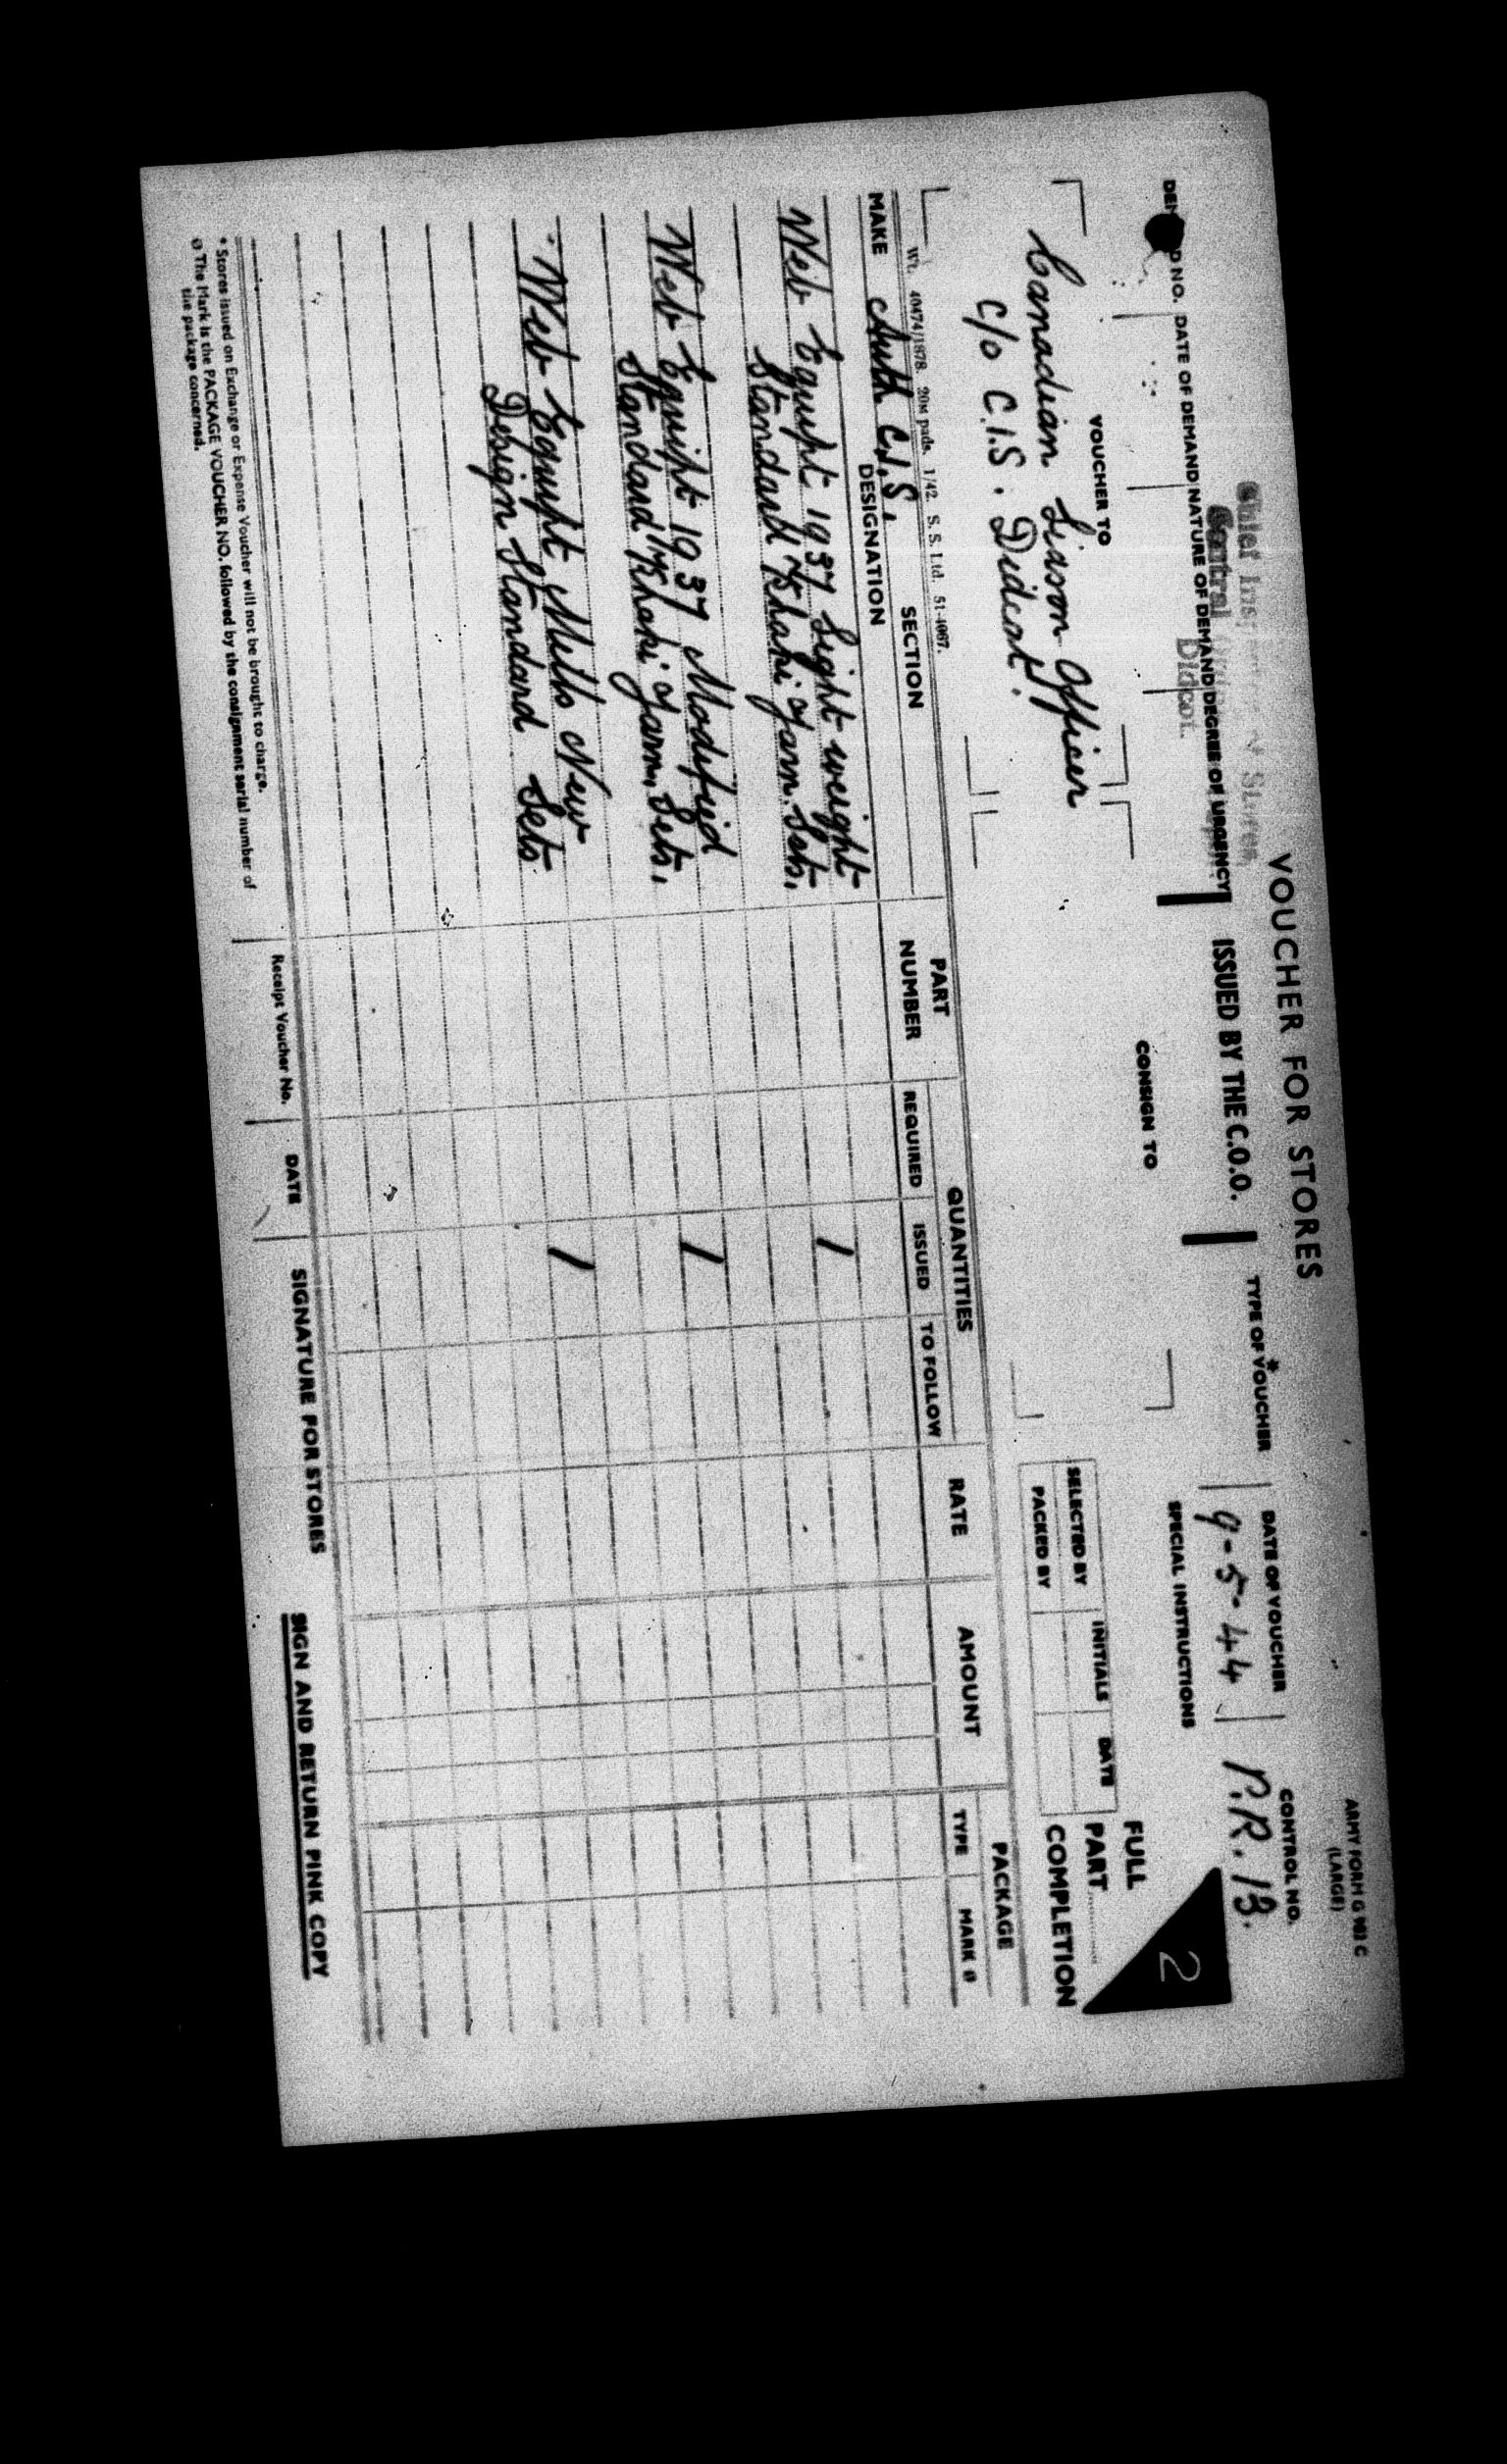 ARMY FORM G 983 C
(LARGE)
VOUCHER FOR STORES
Chief Inspector of Stores,
Central
Didcot.
DEMAND NO. DATE OF DEMAND NATURE OF DEMAND DEGREE OF URGENCY
ISSUED BY THE C.O.O.
TYPE OF VOUCHER *
DATE OF VOUCHER
9-5-44
CONTROL NO.
P.R. 13.
VOUCHER TO
CONSIGN TO
SPECIAL INSTRUCTIONS
Canadian Liason Officer
c/o C.I.S. Didcot.
INITIALS DATE
SELECTED BY
PACKED BY
FULL
PART
COMPLETION
2
Wt. 40474/1878. 20M pads. 1/42. S. S. Ltd. 51-4067.
MAKE Auth C.I.S. SECTION
DESIGNATION
PART NUMBER
QUANTITIES
REQUIRED ISSUED TO FOLLOW
RATE
AMOUNT
PACKAGE
TYPE MARK Ø
Web Equipt 1937 Light weight
Standard Khaki Yarn. Sets. 1
Web Equipt 1937 Modified
Standard Khaki Yarn, Sets, 1
Web Equipt Mills New
Design Standard Sets 1
* Stores issued on Exchange or Expense Voucher will not be brought to charge.
Ø The Mark is the PACKAGE VOUCHER NO. followed by the consignment serial number of
the package concerned.
Receipt Voucher No.
DATE
SIGNATURE FOR STORES
SIGN AND RETURN PINK COPY